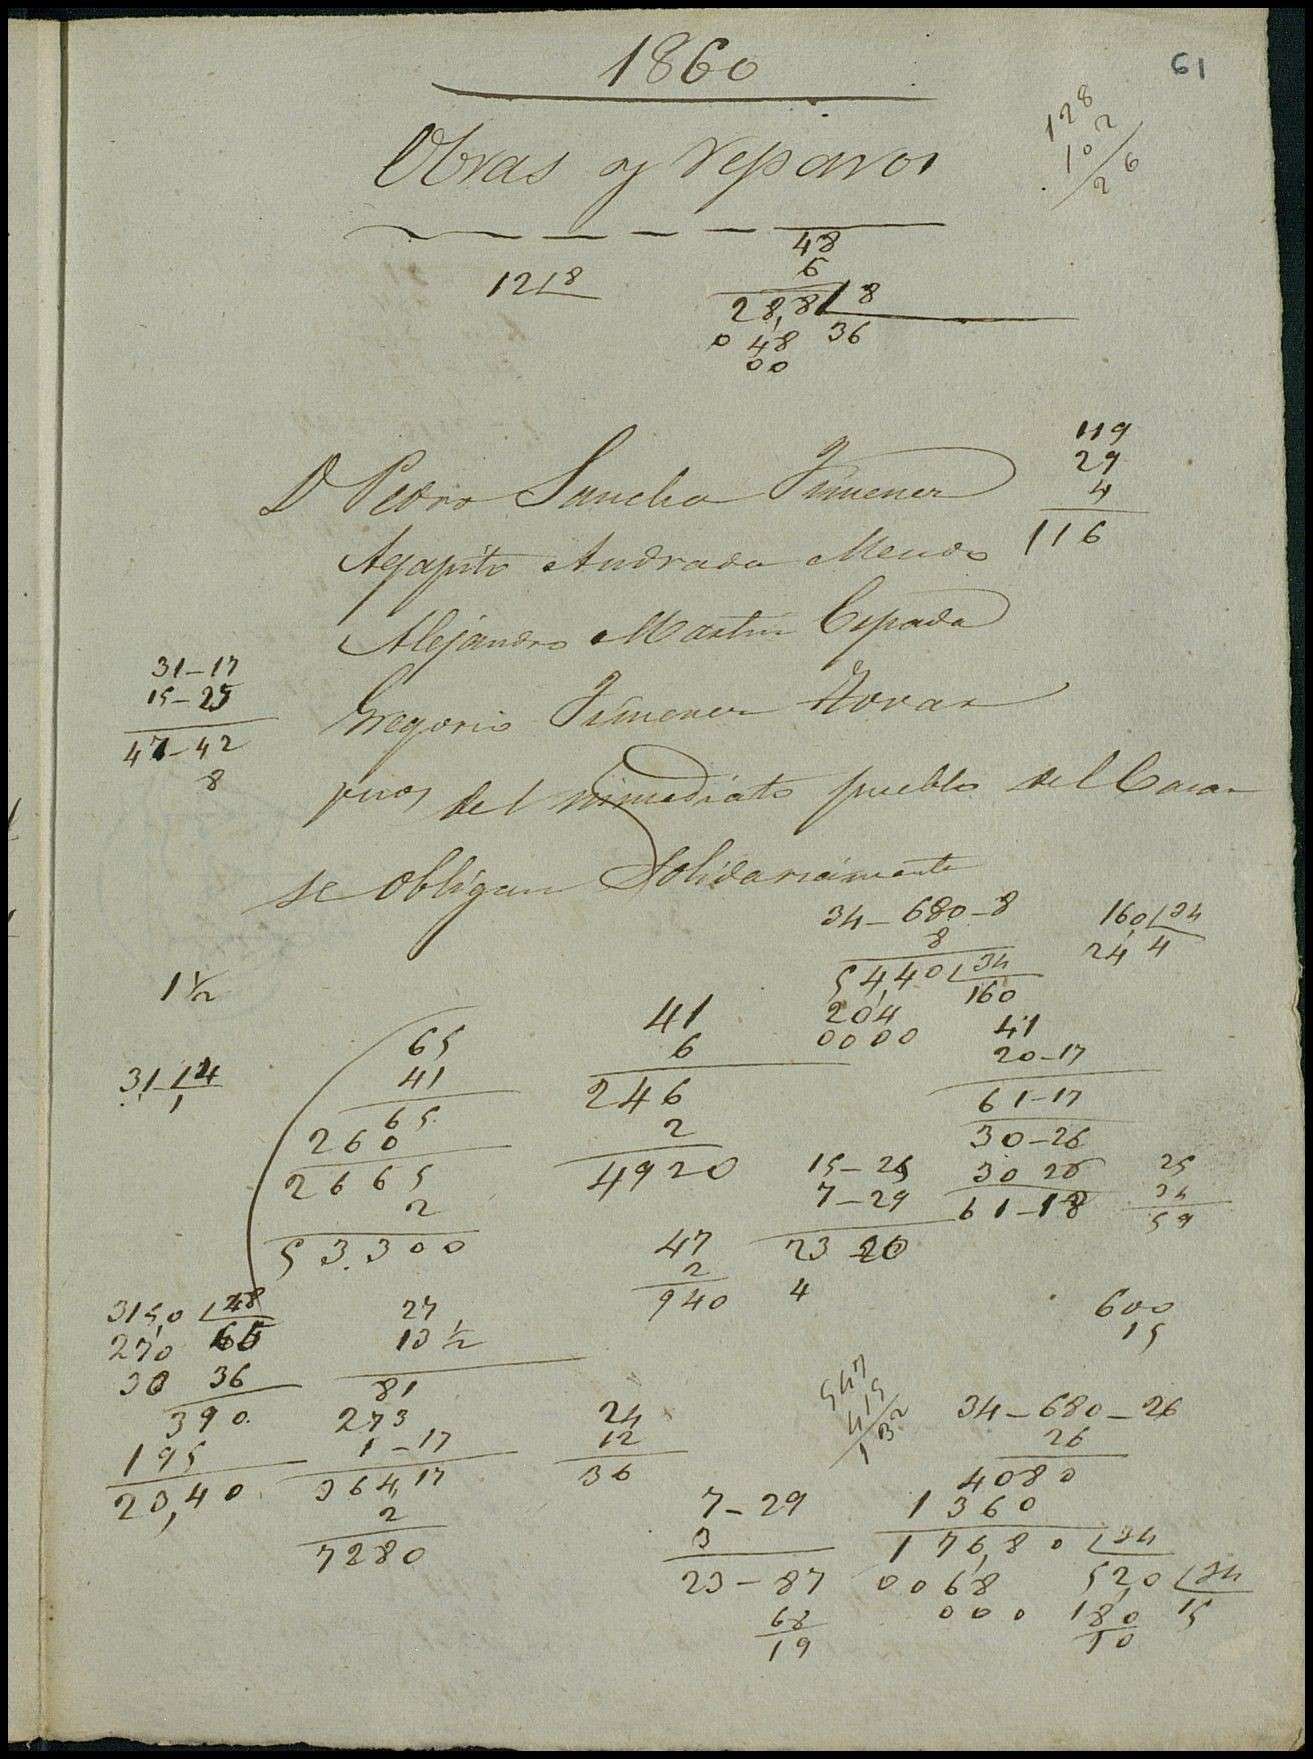 1860
61
128
102
26
Obras y reparos
48
6
12 8
28,8 8
0 48 36
00
119
29
4
116
D Pedro Sancho Jimenez
Agapito Andrada Mendo
Alejandro Martin Espada
31-17
15-25
47-42
8
Gregorio Jimenez Tovar
del inmediato pueblo del Casar
se obligan Solidariamente
34-680-8
8
54,40 34
204 160
0000
160 34
24 4
1 ½
31 24
1
65
41
65
260
2665
2
53.300
41
6
246
2
4920
41
20-17
61-17
30-26
30 26
61-18
15-25
7-29
23 20
4
25
34
59
47
2
940
315,0 48
270 65
30 36
390
195
23,40
27
13 ½
81
273
1-17
364,17
2
7280
24
12
36
547
415
132
600
15
34-680-26
26
4080
1360
1 76,80 34
0068 520 34
000 180 15
10
7-29
3
23-87
68
19